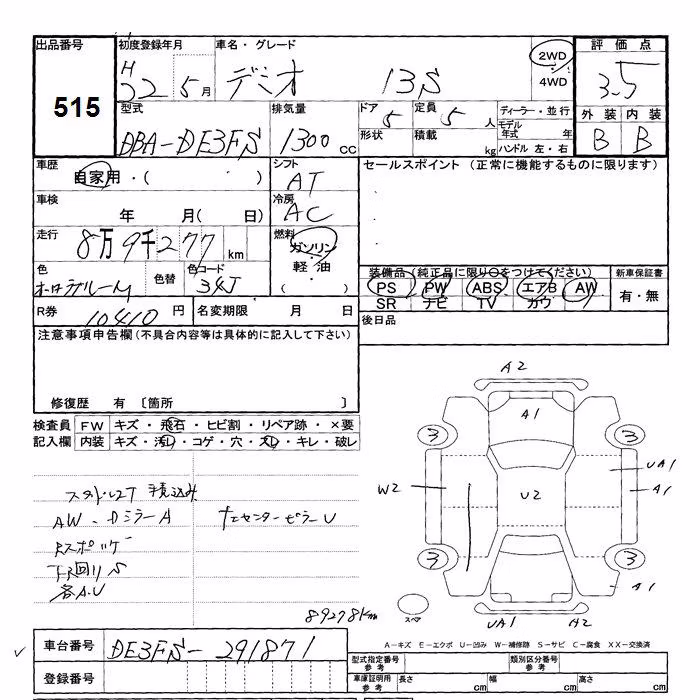 出品番号 初度登録年月 車名・グレード 2WD 評価点
515 H 22 5月 デミオ 13S 4WD 3.5
型式 排気量 ドア 定員 ディーラー・並行 外装 内装
DBA-DE3FS 1300cc 5 5人 モデル年式 年 B B
形状 積載 kg ハンドル 左・右
車歴 自家用・( ) シフト AT セールスポイント (正常に機能するものに限ります)
車検 年 月( 日) 冷房 AC
走行 8万9千277km 燃料 ガソリン・軽油( )
色 色替 色コード 34J 装備品(純正品に限り○をつけてください) 新車保証書
PS PW ABS エアB AW 有・無
SR ナビ TV カワ
R券 10410円 名変期限 月 日 後日品
注意事項申告欄(不具合内容等は具体的に記入して下さい)
修復歴 有 〔箇所 〕
検査員 FW キズ・飛石・ヒビ割・リペア跡・×要
記入欄 内装 キズ・汚れ・コゲ・穴・スレ・キレ・破レ
A2
A1
3 3
UA1
W2 U2 A1
AW・Dミラー A
センターピラー U
3 3
各A.U
A1
89278km
スペア
UA1 A2
車台番号 DE3FS-291871
A-キズ E-エクボ U-凹み W-補修跡 S-サビ C-腐食 XX-交換済
型式指定番号 参考 類別区分番号 参考
登録番号
車庫証明用 参考 長さ cm 幅 cm 高さ cm